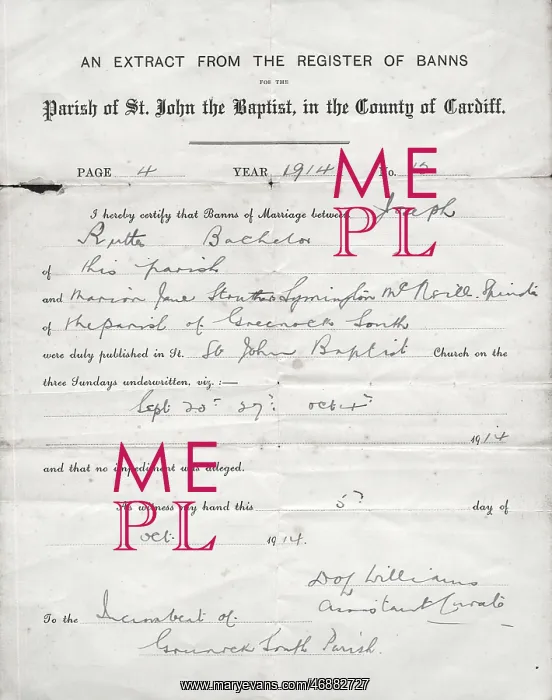 AN EXTRACT FROM THE REGISTER OF BANNS
FOR THE
Parish of St. John the Baptist, in the County of Cardiff.
PAGE 4 YEAR 1914 No.
ME
PL
I hereby certify that Banns of Marriage between Joseph
Rutter Bachelor
of this parish
and Marion Jane Struthers Lymington McNeill. Spinster
of the parish of Greenock South
were duly published in St. St John Baptist Church on the
three Sundays underwritten, viz. :—
Sept 20th 27th Oct 4th
1914
and that no impediment was alleged.
ME
PL
As witness my hand this 5th day of
Oct. 1914.
Williams
Assistant Curate
To the Incumbent of
Greenock South Parish.
www.maryevans.com/46882727